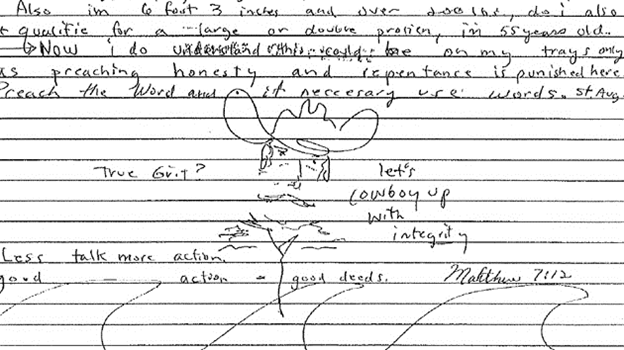 Also im 6 foot 3 inches and over 200 lbs, do i also
qualifie for a large or double protien, im 55 years old..
Now i do understand this could be on my trays only
as preaching honesty and repentance is punished here
Preach the Word and if neccesary use words. St. Aug
True Grit?
let's
cowboy up
with
integrity
Less talk more action.
good — action = good deeds. Matthew 7:12